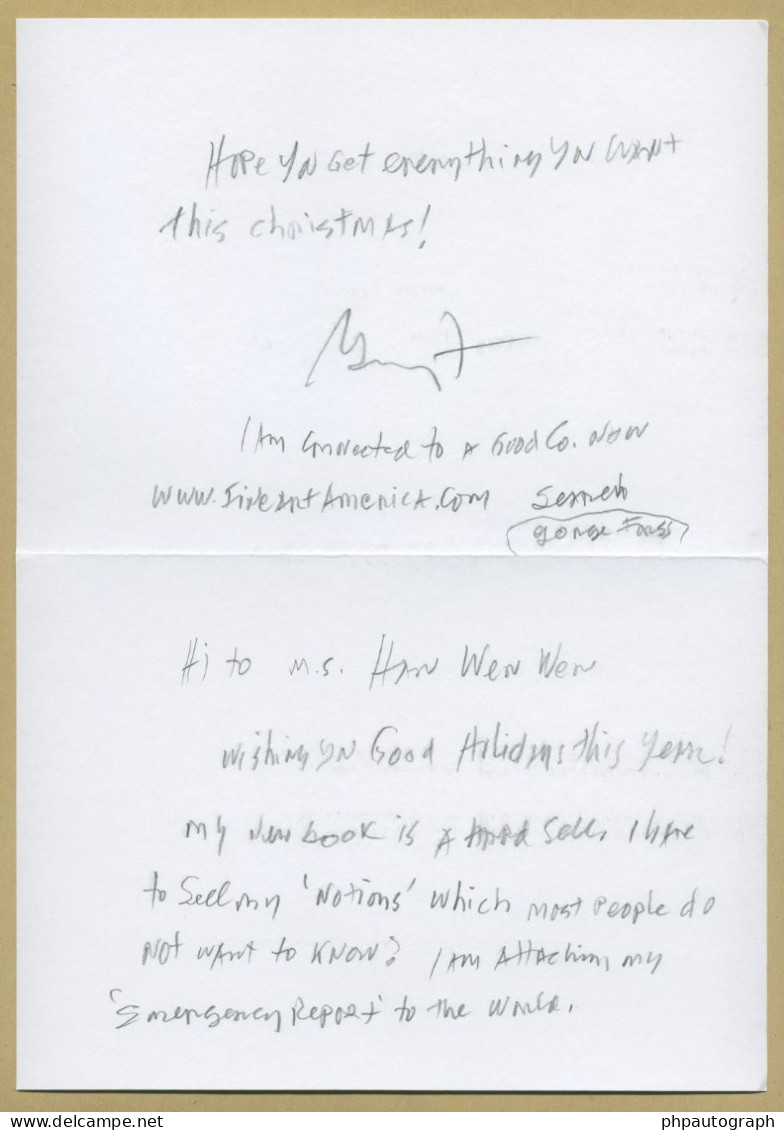 Hope you Get everything you want
this christmas!
I Am connected to A Good Co. Now
www.FineArtAmerica.com Search
George Forss
Hi to M.s. Han Wen Wen
wishing you Good Holidays this year!
my new book is A Hard Sell, I have
to Sell my 'Notions' which most people do
Not want to know? I Am Attaching my
'Emergency Report' to the World.
www.delcampe.net
phpautograph